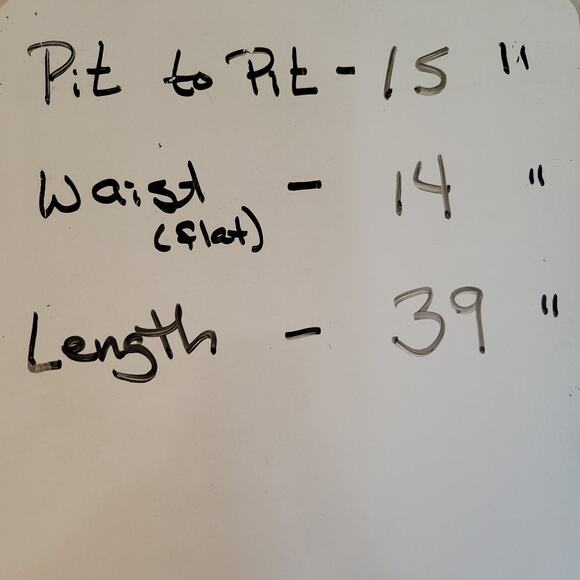 Pit to Pit - 15 "
Waist - 14 "
(flat)
Length - 39 "